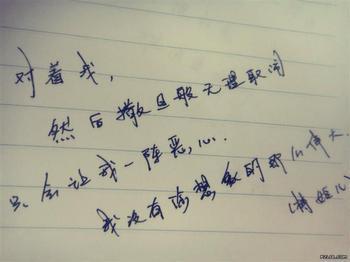 对着我，
然后撒且般无理取闹
只会让我一阵恶心..
我没有你想象的那么伟大